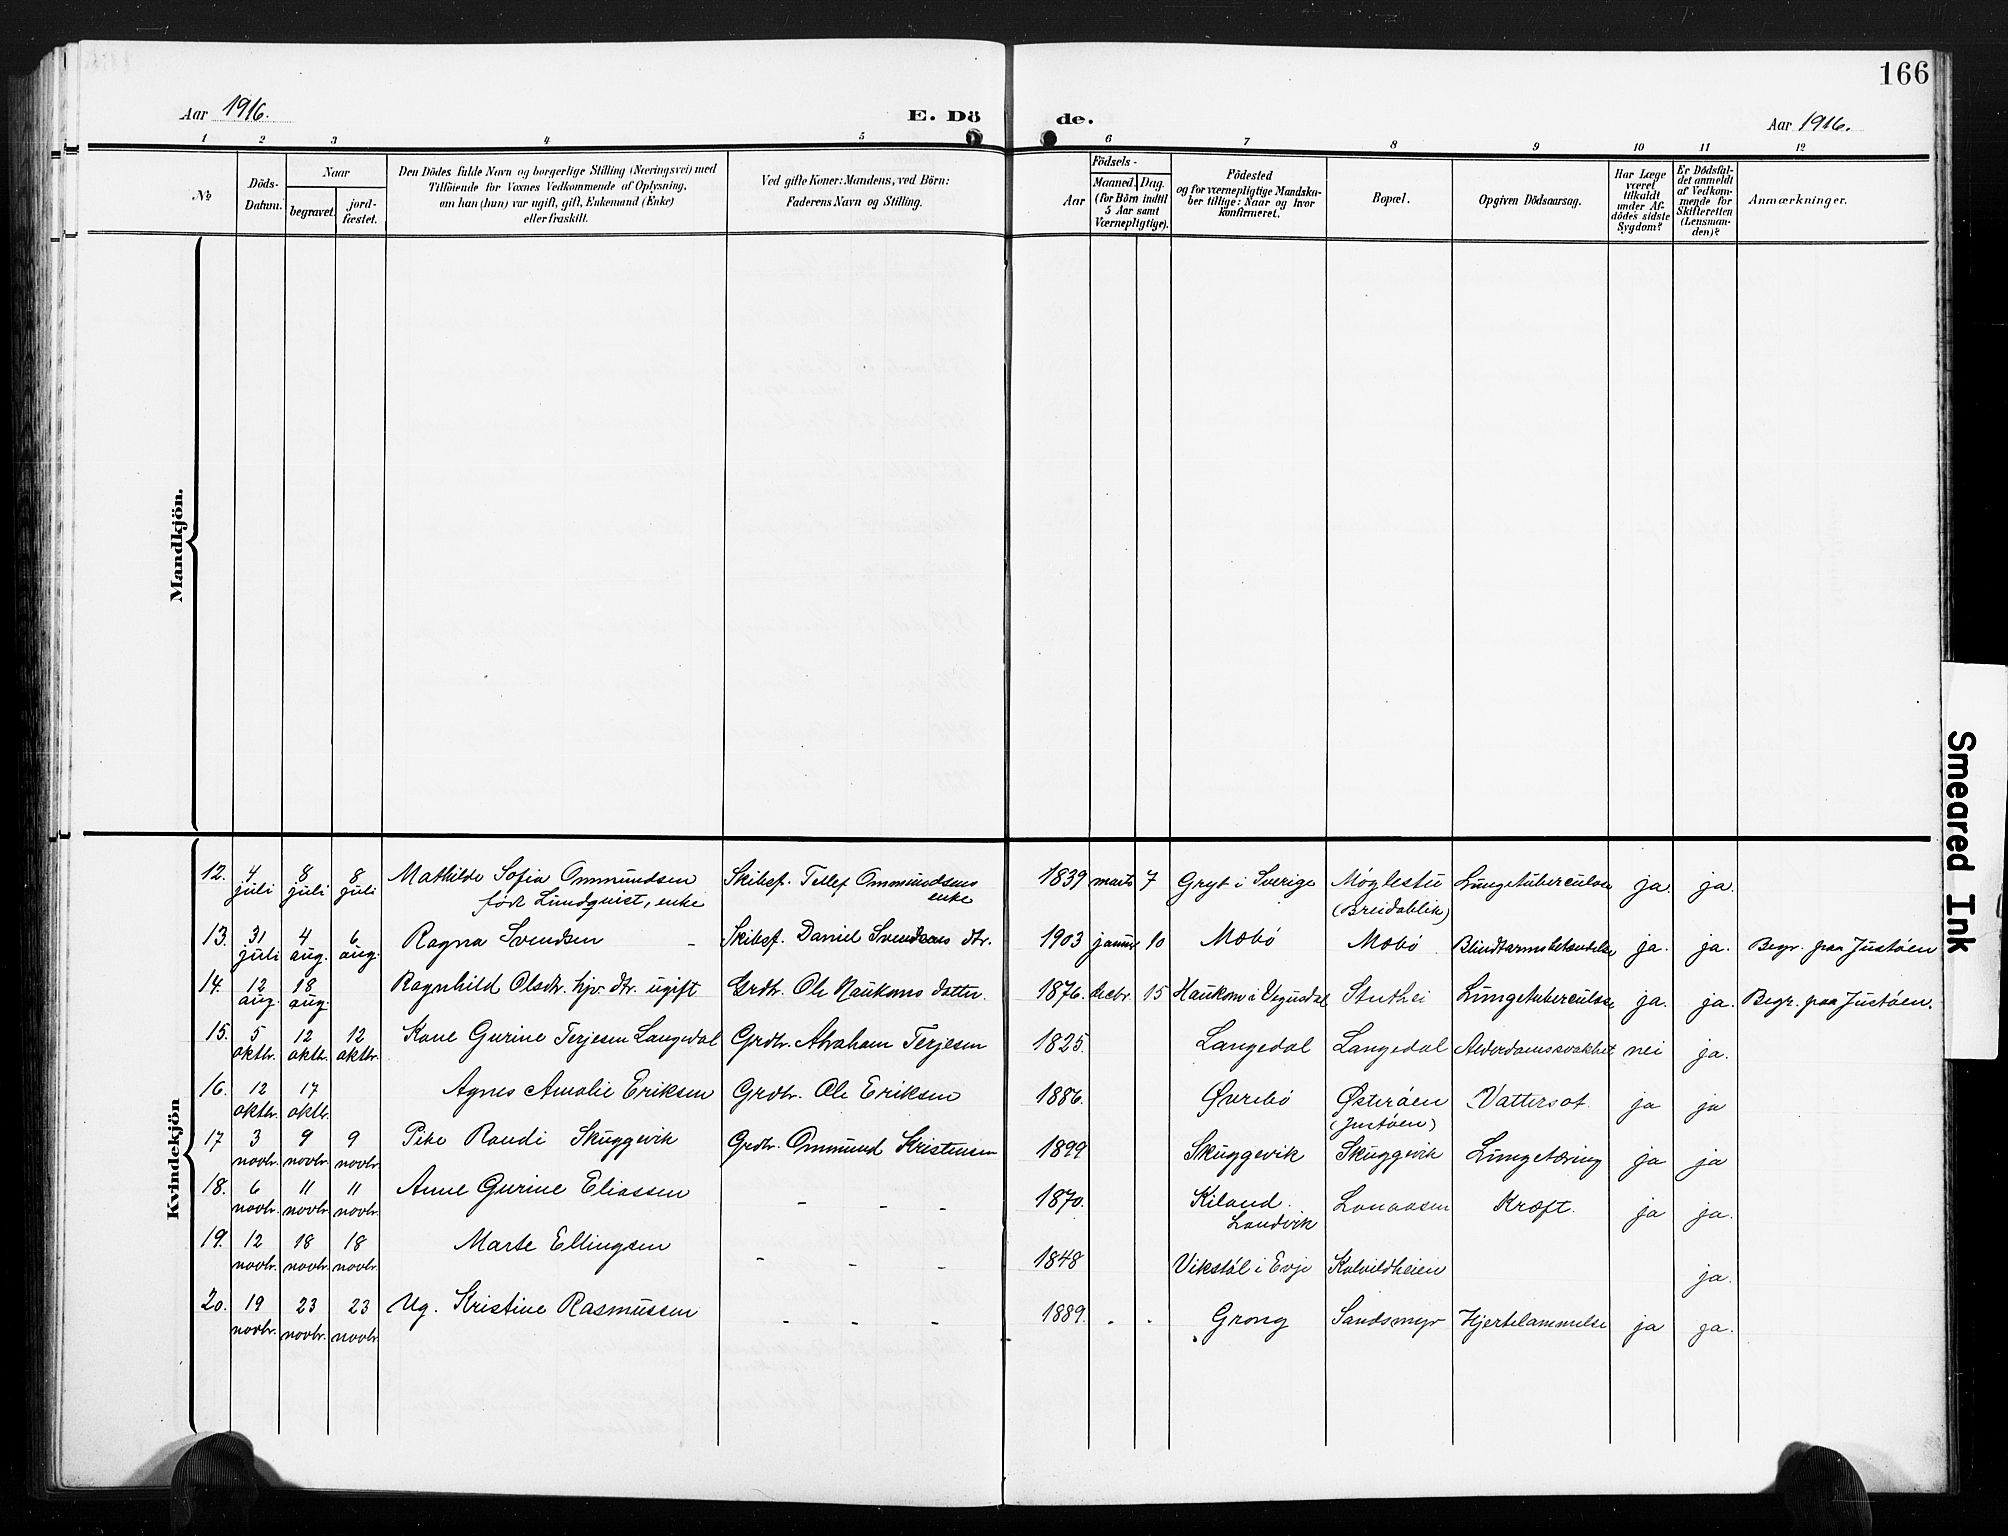 166
Aar 1916.
E. Dö de.
Aar 1916.
1 2 3 4 5 6 7 8 9 10 11 12
No
Döds-
Datum.
Naar
begravet.
jord-
fæstet.
Den Dödes fulde Navn og borgerlige Stilling (Næringsvei) med
Tilföiende for Voxnes Vedkommende af Oplysning.
om han (hun) var ugift, gift, Enkemand (Enke)
eller fraskilt.
Ved gifte Koner: Mandens, ved Börn:
Faderens Navn og Stilling.
Födsels-
Aar
Maaned. Dag.
(for Börn indtil
5 Aar samt
Værnepligtige).
Födested
og for værnepligtige Mandska-
ber tillige: Naar og hvor
konfirmeret.
Bopæl.
Opgiven Dödsaarsag.
Har Læge
været
tilkaldt
under Af-
dödes sidste
Sygdom?
Er Dödsfal-
det anmeldt
af Vedkom-
mende for
Skifteretten
(Lensman-
den)?
Anmærkninger.
Mandkjön.
Kvindekjön
12. 4 juli 8 juli 8 juli Mathilde Sofia Ommundsen Skibsf. Tellef Ommundsens 1839 marts 7 Gryt i Sverige Møglestu Lungetuberculose ja. ja.
født Lundquist, enke enke (Breidablik)
13. 31 juli 4 aug. 6 aug. Ragna Svendsen - Skibsf. Daniel Svendsens dtr. 1903 januar 10 Mæbø Mæbø Blindtarmsbetændelse ja. ja. Begr. paa Justøen
14. 12 aug. 18 aug. Ragnhild Olsdtr. hjv. dtr. ugift Grdbr. Ole Haukoms datter. 1876. decbr. 15 Haukom i Vegusdal Stuthei Lungetuberculose ja. ja. Begr. paa Justøen.
15. 5 oktbr. 12 oktbr. 12 oktbr. Kone Gurine Terjesen Langedal Grdbr. Abraham Terjesen 1825. Langedal Langedal Alderdomssvakhet nei ja.
16. 12 oktbr. 17 oktbr. Agnes Amalie Eriksen Grdbr. Ole Eriksen 1886. Øvrebø Østerøen Vattersot. ja ja
(Justøen)
17 3 novbr. 9 novbr. 9 novbr. Pike Randi Skuggevik Grdbr. Ommund Kristensen 1899 Skuggevik Skuggevik Lungetæring ja ja
18. 6 novbr. 11 novbr. 11 novbr. Anne Gurine Eliassen - - - 1870. Kiland. Lonaasen Kræft. ja ja.
Landvik
19. 12 novbr. 18 novbr. 18 novbr. Marte Ellingsen - - - 1848 Vikstøl i Evje Kalvildheien ja.
20. 19 novbr. 23 novbr. 23 novbr. Ug. Kristine Rasmussen - - - 1889. - - Grong Sandsmyr Hjertelammelse ja ja.
Smeared Ink